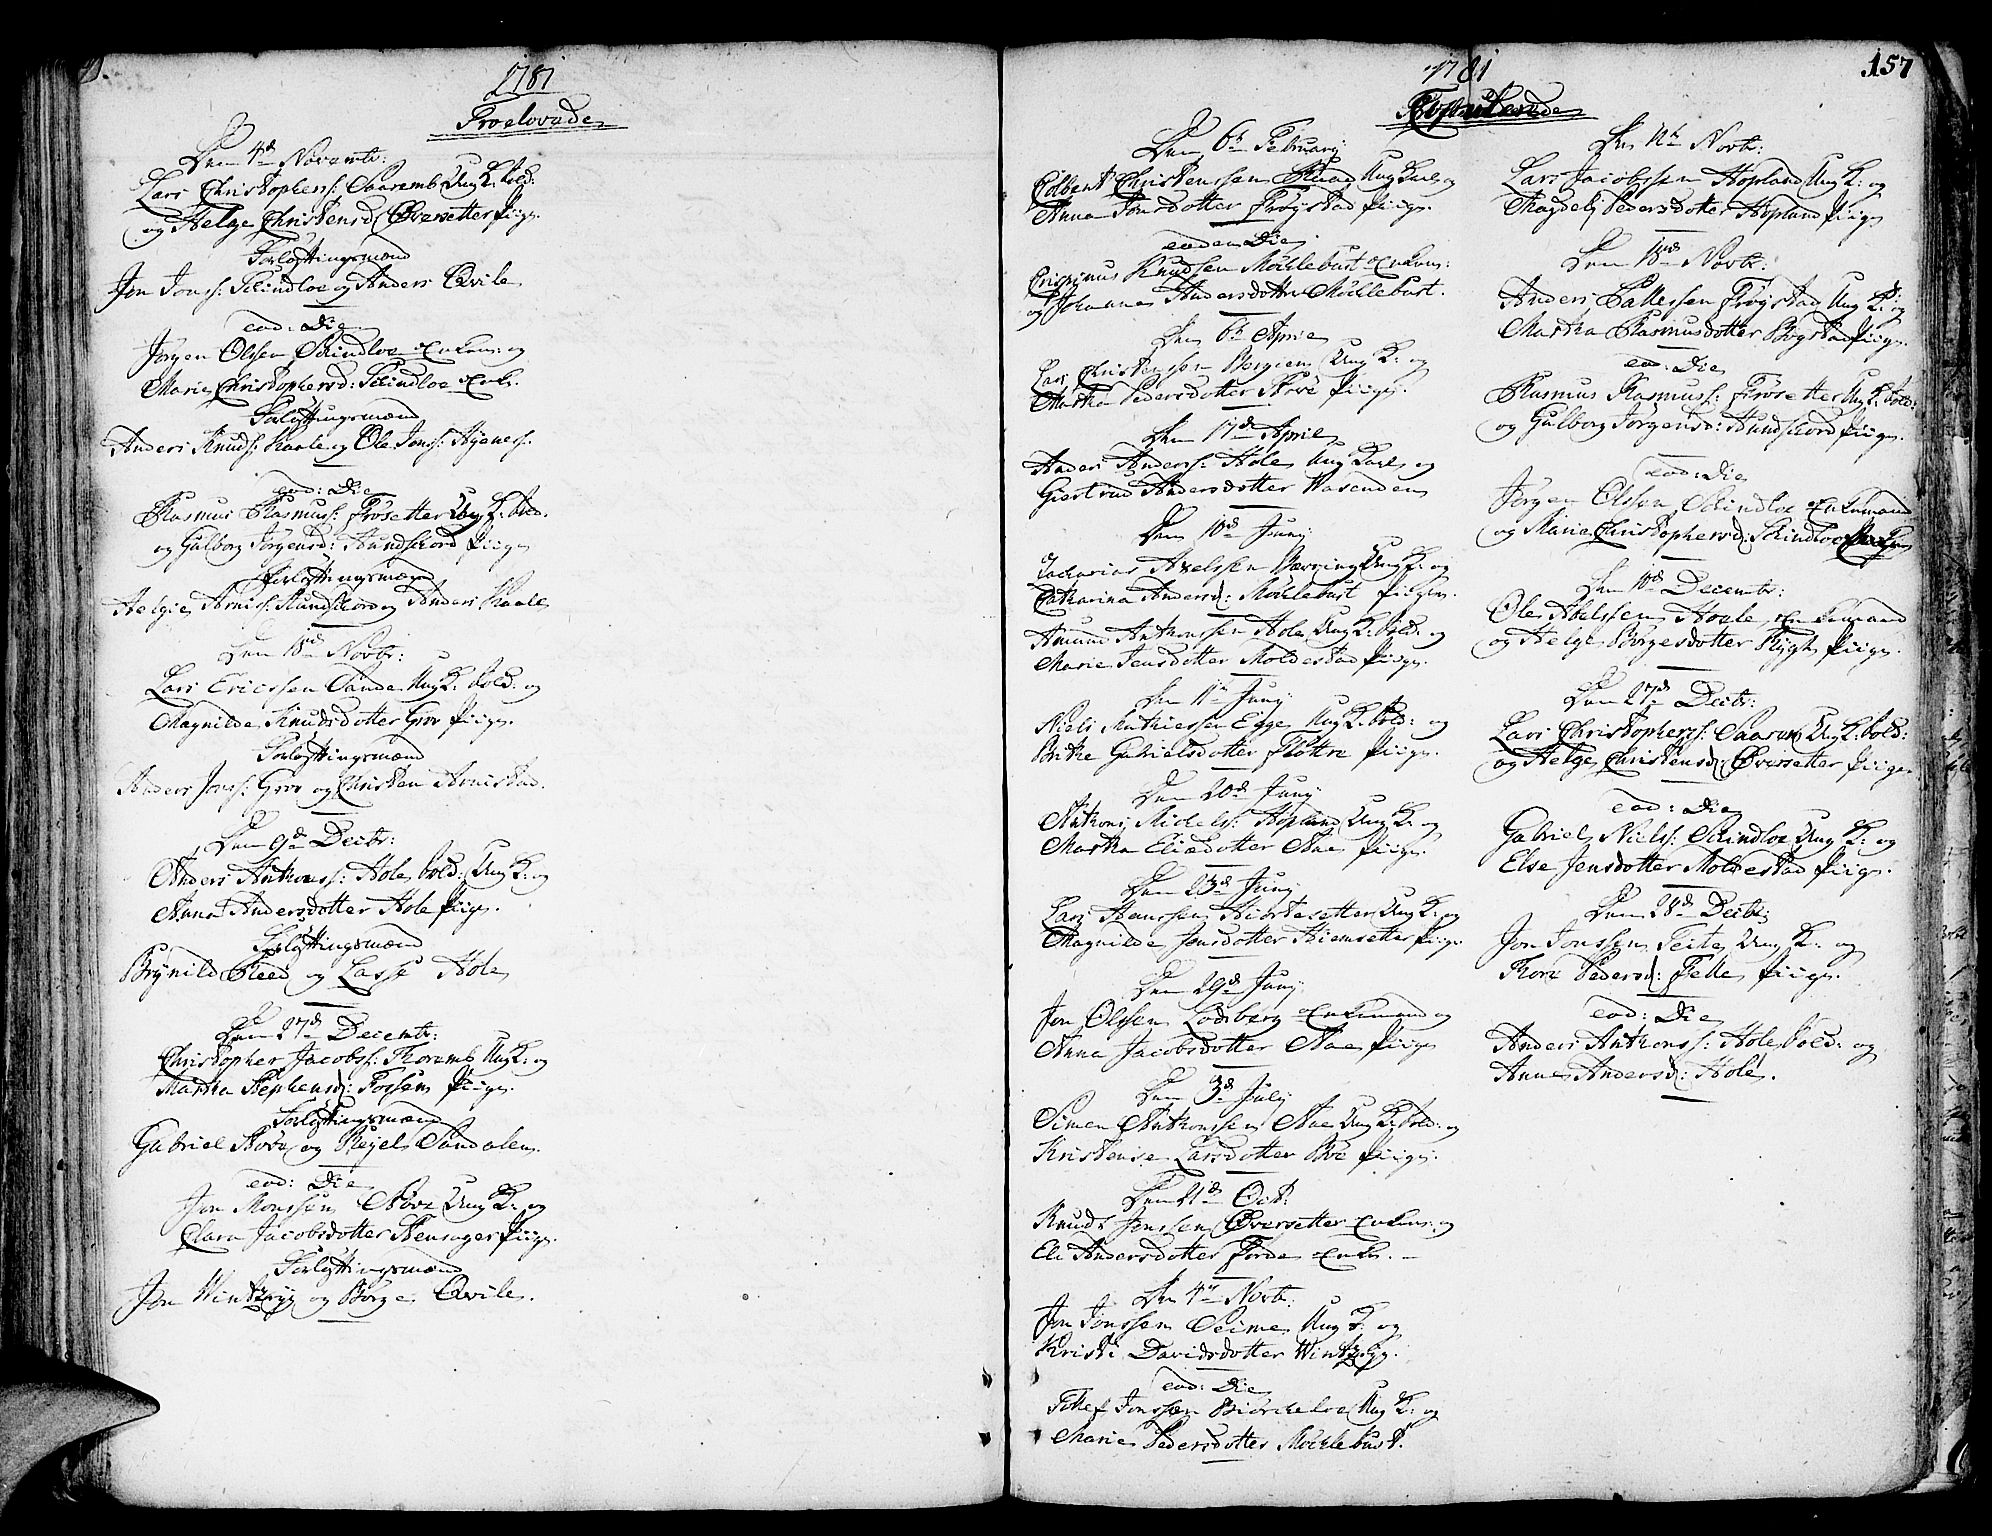 1781
Troelovede
Den 4de Novembr:
Lars Christophers: Saaremb Ung K: Sold:
og Helge Christensd: Øvresetter Piige.
Forløftningsmænd
Jon Jonss: Schindloe og Anders Qvile
eod: Die
Jørgen Olssen Schindloe Enkem: og
Marie Christophersd: Schindloe Enke.
Forløftningsmænd
Anders Knuds: Haale og Ole Jonss:
eod: Die
Rasmus Rasmuss: Frøsetter Ung K: Sold.
og Gulborg Jørgensd: Hundschord Piige
Forløftningsmænd
Helgie Arniss: Hundschord og Anders Haale
Den 18de Novbr:
Lars Ericssen Sande Ung K: Sold: og
Magnilde Knudsdotter Grov Piige.
Forløftningsmænd
Anders Jonss: Grov og Christen Arnestad.
Den 9de Decbr:
Anders Anthonss: Hole Sold: Ung K: og
Anna Andersdotter Hole Piige.
Forløftningsmænd
Brynild Reed og Lasse Hole
Den 27de Decembr:
Christopher Jacobss: Thoremb Ung K: og
Martha Stephensd: Fossem Piige.
Forløftningsmænd
Gabriel Hove og Rejel Sandalen.
eod: Die
Jon Monssen Nøve Ung K: og
Clara Jacobsdotter Stensager Piige.
Forløftningsmænd
Jon Wintzryg og Børge Qvile.
1781
157
Copulerede
Den 6te February
Colbent Christenssen Ung Karl og
Anna Jonsdotter Frøystad Piige.
eodem Die
Erasmus Knudsen Möchlebust Enkem:
og Johanne Andersdotter Möchlebust.
Den 6te April
Lars Christenssen Bergien Ung K: og
Martha Pedersdotter Hove Piige.
Den 17de April
Anders Anderss: Hole Ung Karl og
Giertrud Andersdotter Vasenden
Den 10de Juny
Zacharias Axelssen Værring Ung K: og
Catharina Andersd: Möchlebust Piigen.
Amund Anthonssen Hole Ung K: Sold: og
Marie Jensdotter Moldestad Piige.
Den 11te Juny
Niels Mathiessen Egge Ung K: Sold: og
Brithe Gabrielsdotter Fløttre Piige.
Den 20de Juny
Anthoni Michels: Hopland Ung K: og
Martha Eliædotter Aae Piige.
Den 23de Juny
Lars Hanssen Hiortesetter Ung K: og
Magnilde Jonsdotter Hiemsetter Piige.
Den 29de Juny
Jon Olssen Lodsberg Enkemand og
Anna Jacobsdotter Aae Piige
Den 3de July
Simen Anthonssen Aae Ung K: Sold: og
Kristense Larsdotter Bøe Piige.
Den 21de Octb:
Knud Jonssen Øvresetter Enkem: og
Eli Andersdotter Førde Enke. –
Den 4de Novbr:
Jon Jonssen Seime Ung K: og
Kristi Davidsdotter Wintzryg.
eod: Die
Tittef Jonssen Biørcheloe Ung K: og
Marie Pedersdotter Möchlebust.
Den 11te Novbr:
Lars Jacobssen Hopland Ung K: og
Magdeli Pedersdotter Hopland Piige
Den 18de Novbr:
Anders Pallessen Frøystad Ung K: og
Martha Rasmusdotter Rygstad Piige.
eod: Die
Rasmus Rasmuss: Frøsetter Ung K: Sold:
og Gulborg Jørgensd: Hundschord Piige.
eod: Die
Jørgen Olssen Schindloe Enkemand
og Marie Christophersd: Schindloe
Den 10de Decembr:
Ole Abelssen Haale Enkemand
og Helge Børgesdotter Rygh Piige.
Den 27de Decbr:
Lars Christopherss: Saarem Ung K: Sold:
og Helge Christensd: Øvresetter Piige.
eod: Die
Gabriel Nielss: Schindloe Ung K: og
Else Jensdotter Moldestad Piige.
Den 28de Decbr:
Jon Jonssen Teite Ung K: og
Thore Pedersd: Felle Piige.
eod: Die
Anders Anthonss: Hole Sold: og
Anne Andersd: Hole.